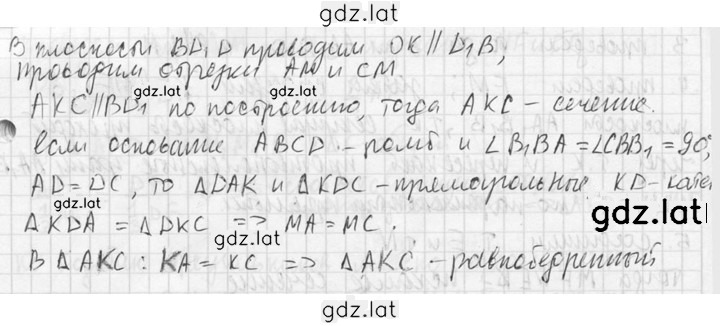 gdz.lat
В плоскости BD₁D проводим OK ∥ D₁B,
проводим отрезки AM и CM.
gdz.lat
AKC ∥ BD₁ по построению, тогда AKC – сечение.
если основание ABCD – ромб и ∠B₁BA = ∠CBB₁ = 90°,
AD = DC, то ΔDAK и ΔKDC – прямоугольные, KD – кате
gdz.lat
ΔKDA = ΔDKC => MA = MC.
gdz.lat
В ΔAKC : KA = KC => ΔAKC – равнобедренный
gdz.lat